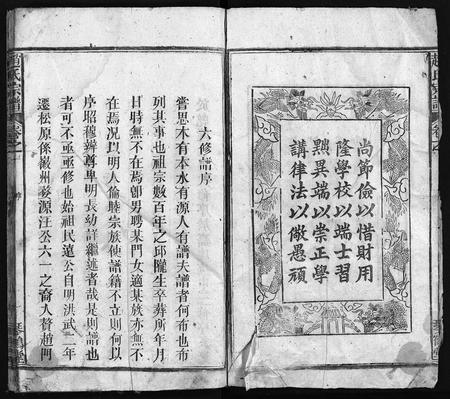 尚節儉以惜財用
隆學校以端士習
黜異端以崇正學
講律法以儆愚頑
六修譜序
嘗思木有本水有源人有譜夫譜者何布也布
列其事也祖宗數百年之邱隴生卒葬所年月
日時無不在焉卽男聘某門女適某族亦無不
在焉况以明人倫睦宗族使譜籍不立則何以
序昭穆辨尊卑明長幼詳繼述者哉是則譜也
者可不亟亟修也始祖民遠公自明洪武二年
遷松原係徽州婺源汪㘭六一之裔人贅趙門
氏宗譜
卷之